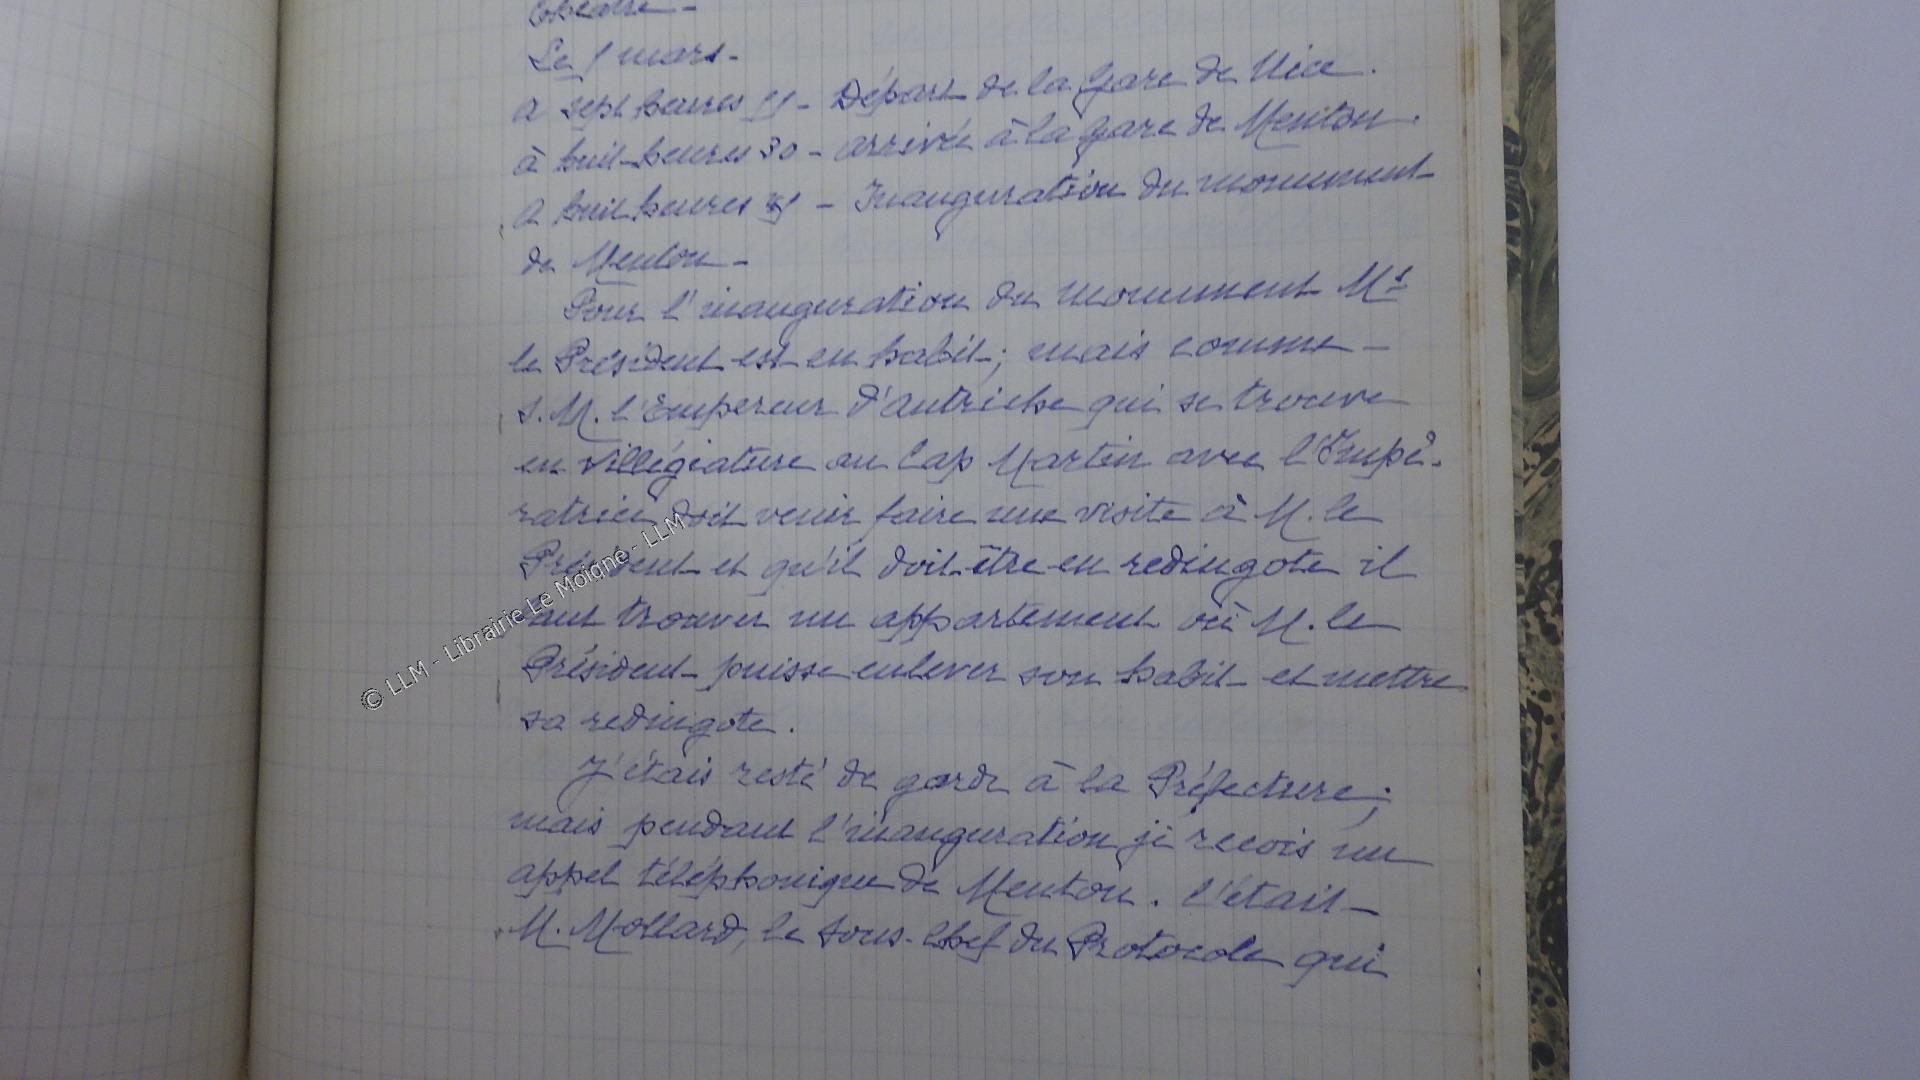 théâtre -
Le 5 mars -
à sept heures 55 - Départ de la gare de Nice.
à huit heures 30 - arrivée à la gare de Menton.
à huit heures - Inauguration du monument
de Menton -
Pour l'inauguration du monument Mr
le Président est en habit; mais comme
S.M. l'Empereur d'Autriche qui se trouve
en villégiature au Cap Martin avec l'Impé-
ratrice doit venir faire une visite à M. le
Président et qu'il doit être en redingote il
faut trouver un appartement où M. le
Président puisse enlever son habit et mettre
sa redingote.
J'étais resté de garde à la Préfecture;
mais pendant l'inauguration je recois un
appel téléphonique de Menton. C'était
M. Mollard, le sous-chef du Protocole qui
© LLM - Librairie Le Moigne - LLM